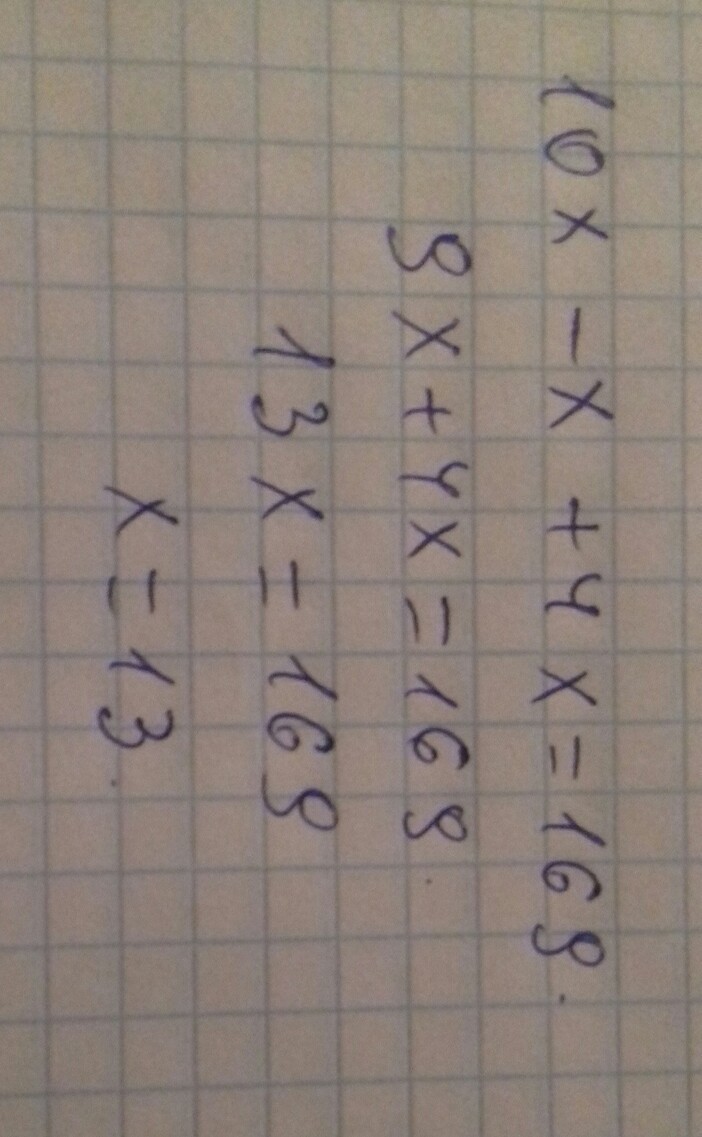 10x - x + 4x = 169.
9x + 4x = 169.
13x = 169
x = 13.